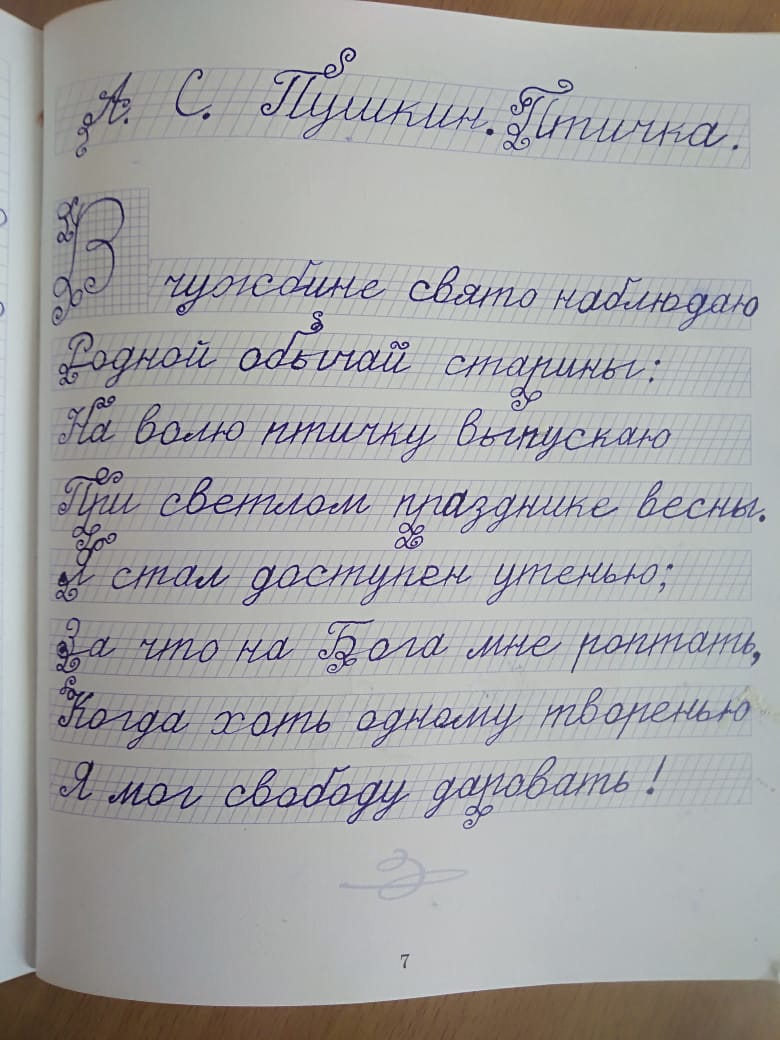 А. С. Пушкин. Птичка.
В чужбине свято наблюдаю
Родной обычай старины:
На волю птичку выпускаю
При светлом празднике весны.
Я стал доступен утенью;
За что на Бога мне роптать,
Когда хоть одному творенью
Я мог свободу даровать!
7